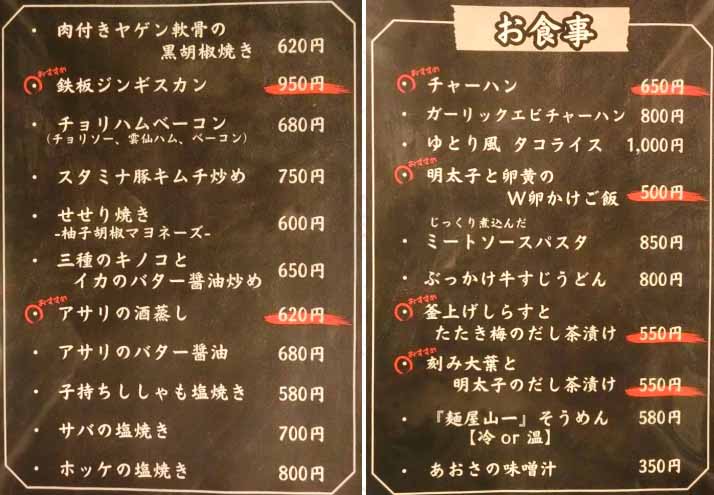 ・肉付きヤゲン軟骨の
黒胡椒焼き 620円
おすすめ
・鉄板ジンギスカン 950円
・チョリハムベーコン 680円
(チョリソー、雲仙ハム、ベーコン)
・スタミナ豚キムチ炒め 750円
・せせり焼き
-柚子胡椒マヨネーズ- 600円
・三種のキノコと
イカのバター醤油炒め 650円
おすすめ
・アサリの酒蒸し 620円
・アサリのバター醤油 680円
・子持ちししゃも塩焼き 580円
・サバの塩焼き 700円
・ホッケの塩焼き 800円
お食事
おすすめ
・チャーハン 650円
・ガーリックエビチャーハン 800円
・ゆとり風 タコライス 1,000円
おすすめ
・明太子と卵黄の
W卵かけご飯 500円
じっくり煮込んだ
・ミートソースパスタ 850円
・ぶっかけ牛すじうどん 800円
おすすめ
・釜上げしらすと
たたき梅のだし茶漬け 550円
おすすめ
・刻み大葉と
明太子のだし茶漬け 550円
・『麺屋山一』そうめん 580円
【冷 or 温】
・あおさの味噌汁 350円